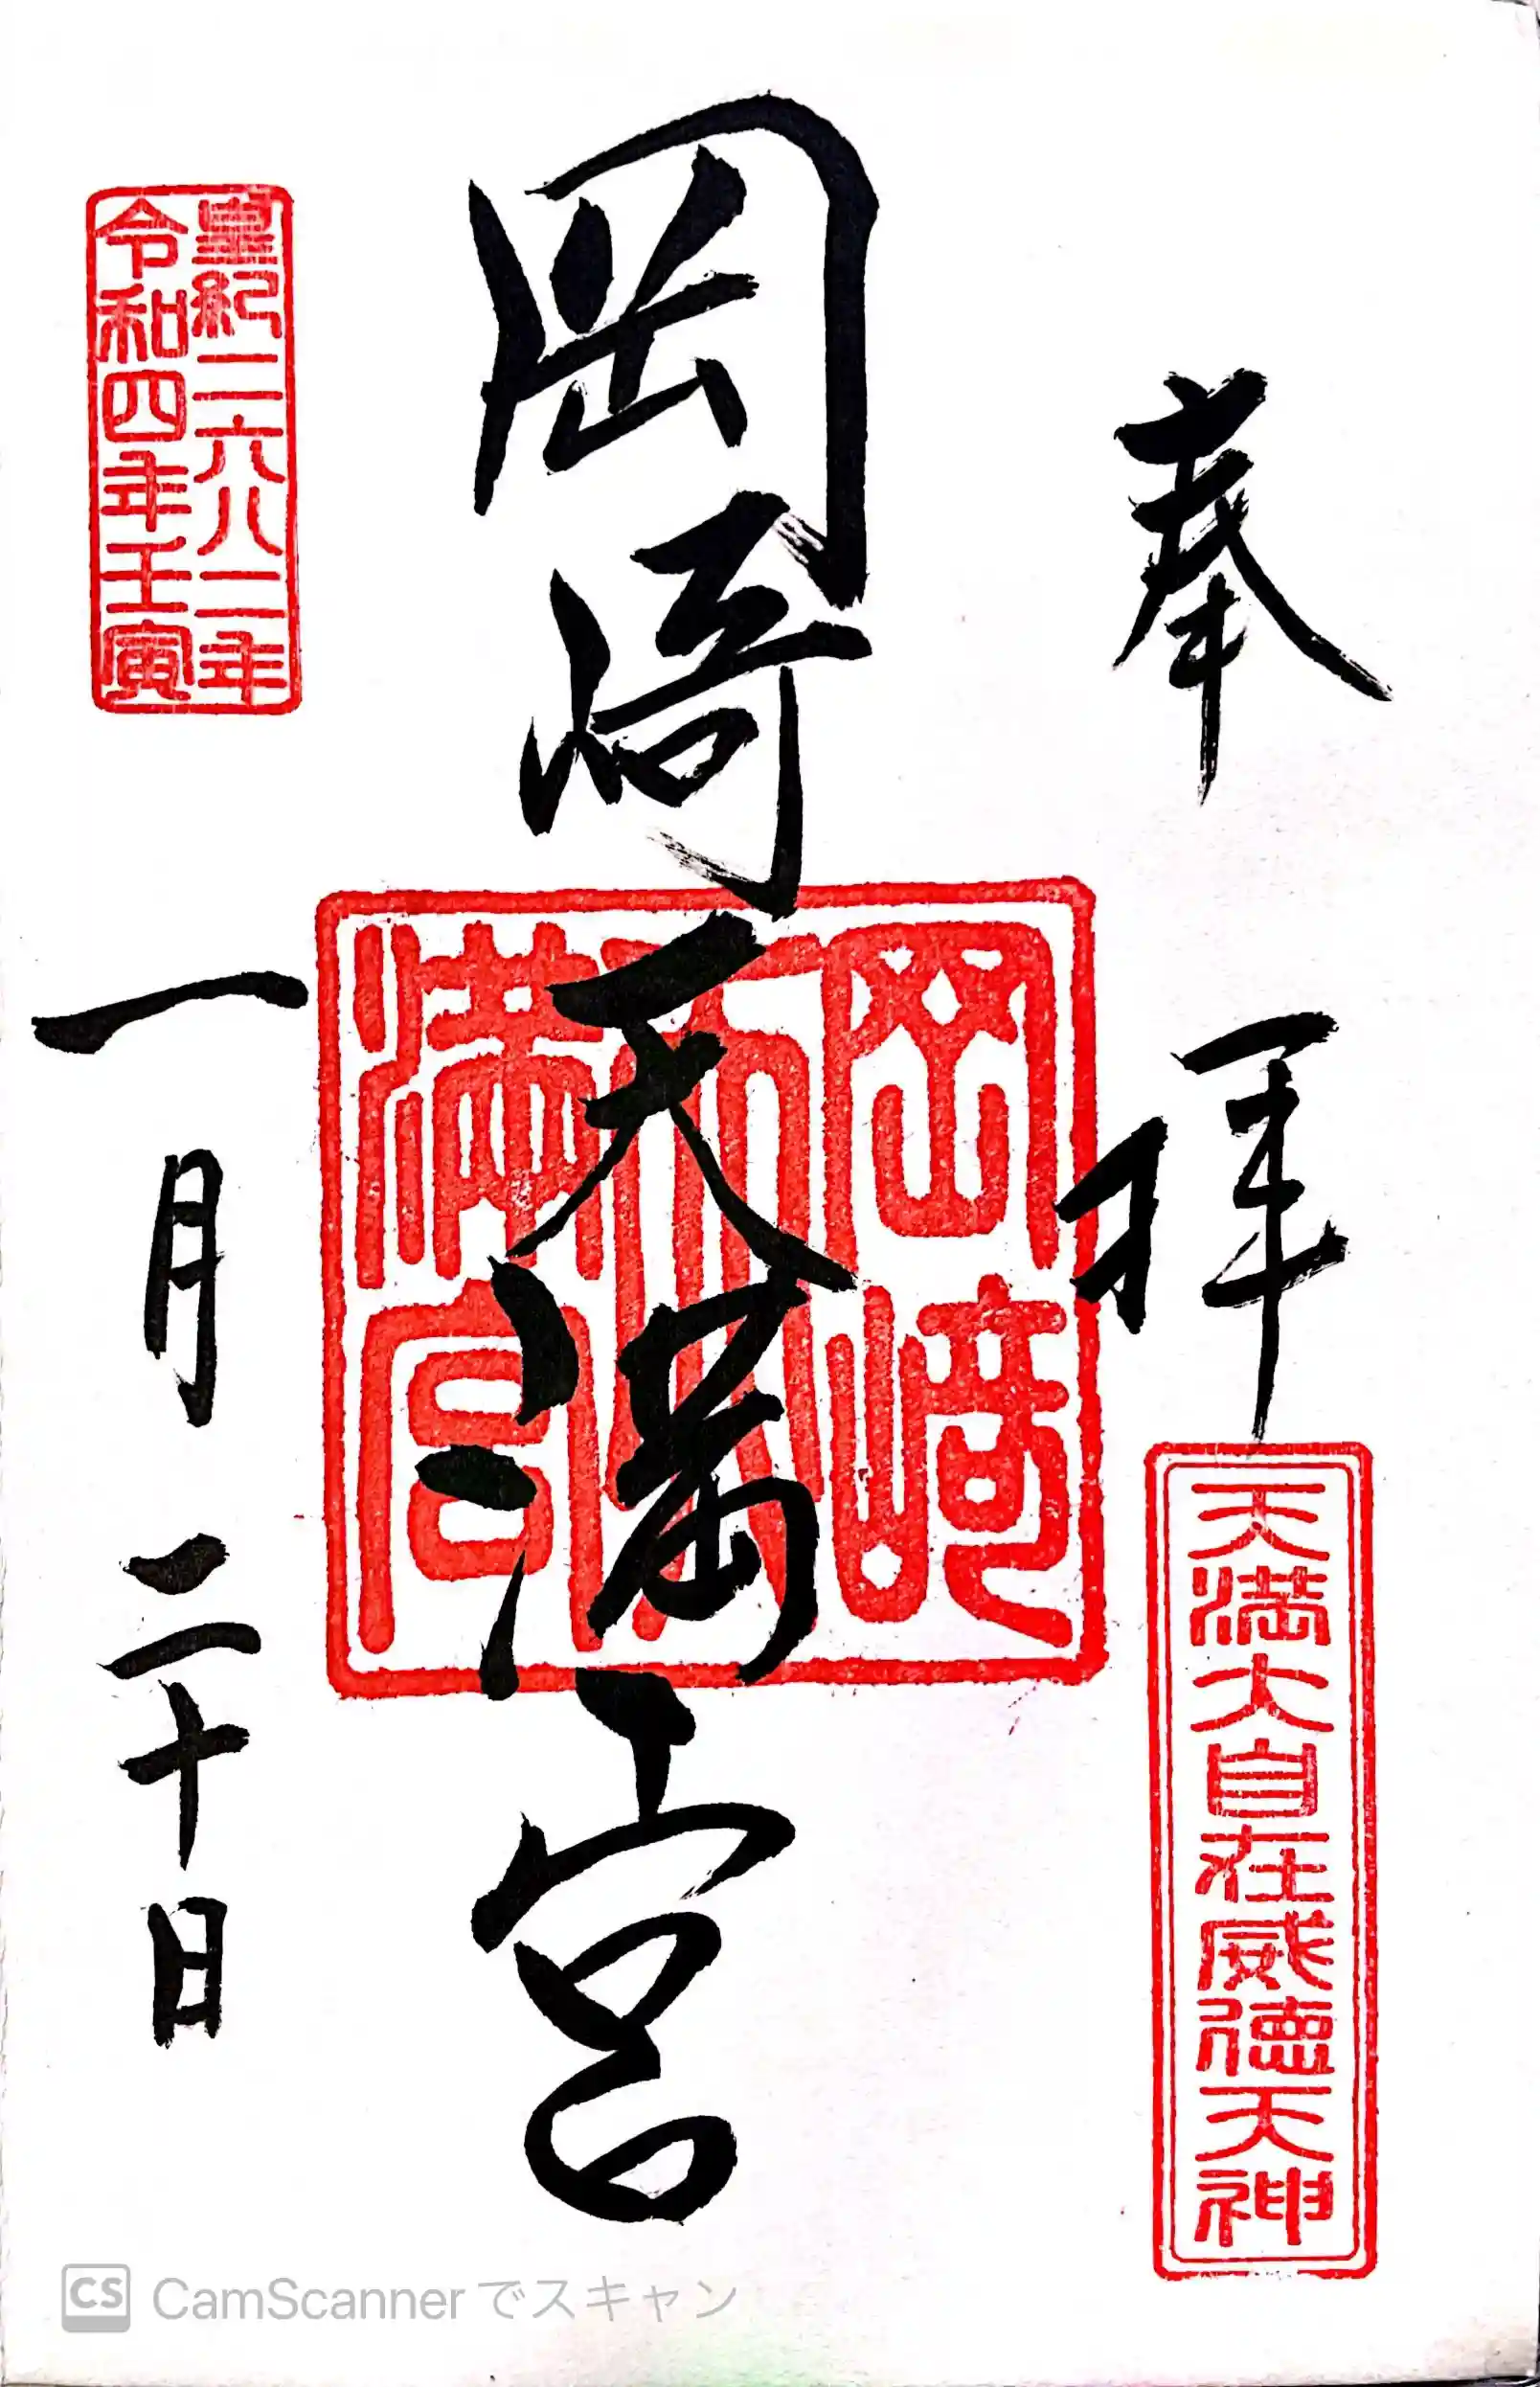 奉拝
天満大自在威徳天神
岡崎天満宮
岡崎
天
満宮
皇紀二六八二年
令和四年壬寅
一月二十日
CS CamScannerでスキャン